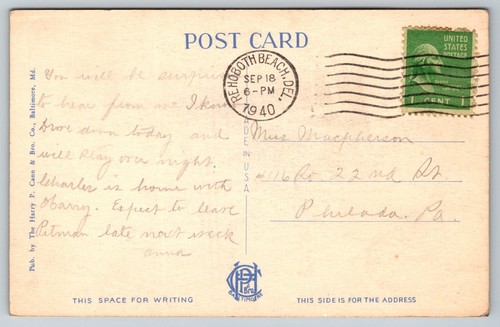 POST CARD
UNITED
STATES
POSTAGE
1 CENT 1
REHOBOTH BEACH, DEL.
SEP 18
6-PM
1940
You will be surprised
to hear from me I know
Drove down today and
will stay over night.
Charles is home with
Harry. Expect to leave
Pitman late next week
Anna
Miss Macpherson
116 So 22nd St
Philada. Pa.
Pub. by The Harry P. Cann & Bro. Co., Baltimore, Md.
MADE IN U.S.A.
BALTIMORE
THIS SPACE FOR WRITING
THIS SIDE IS FOR THE ADDRESS